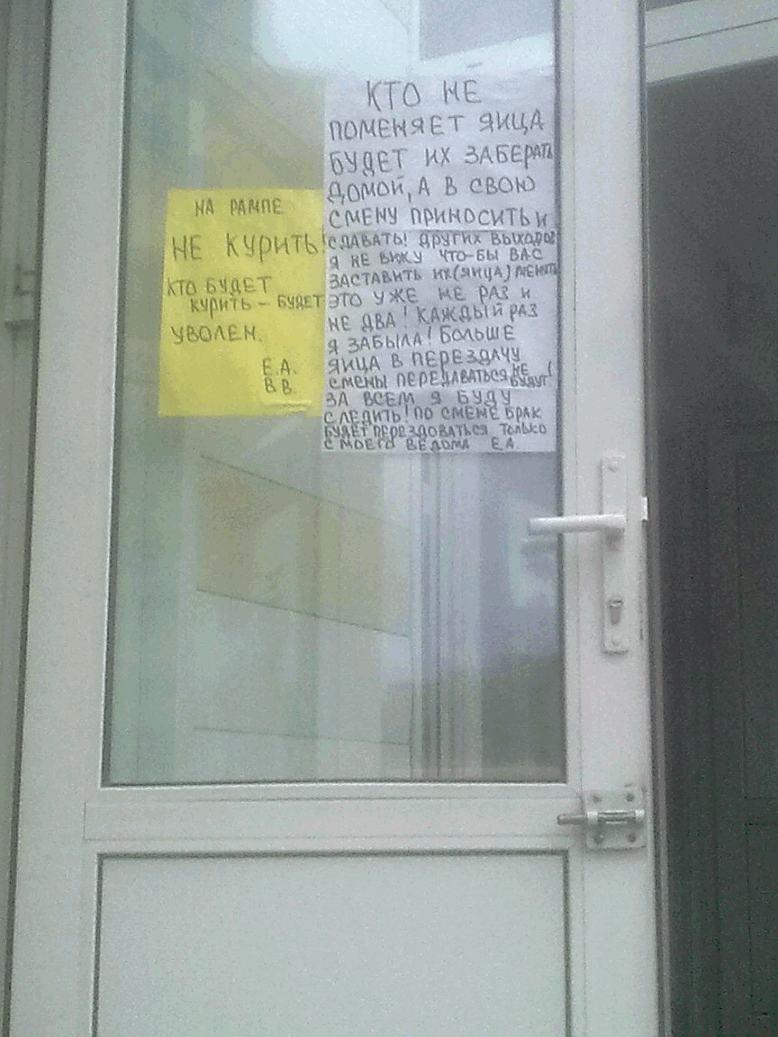 НА РАМПЕ
НЕ КУРИТЬ!
КТО БУДЕТ
КУРИТЬ – БУДЕТ
УВОЛЕН.
Е.А.
В.В.
КТО НЕ
ПОМЕНЯЕТ ЯИЦА
БУДЕТ ИХ ЗАБЕРАТЬ
ДОМОЙ, А В СВОЮ
СМЕНУ ПРИНОСИТЬ И
СДАВАТЬ! ДРУГИХ ВЫХОДОВ
Я НЕ ВИЖУ ЧТО-БЫ ВАС
ЗАСТАВИТЬ ИХ(ЯИЦА) МЕНЯТЬ
ЭТО УЖЕ НЕ РАЗ И
НЕ ДВА! КАЖДЫЙ РАЗ
Я ЗАБЫЛА! БОЛЬШЕ
ЯИЦА В ПЕРЕЗДАЧУ
СМЕНЫ ПЕРЕДАВАТЬСЯ НЕ БУДУТ!
ЗА ВСЕМ Я БУДУ
СЛЕДИТЬ! ПО СМЕНЕ БРАК
БУДЕТ ПЕРЕЗДОВАТЬСЯ ТОЛЬКО
С МОЕГО ВЕДОМА Е.А.